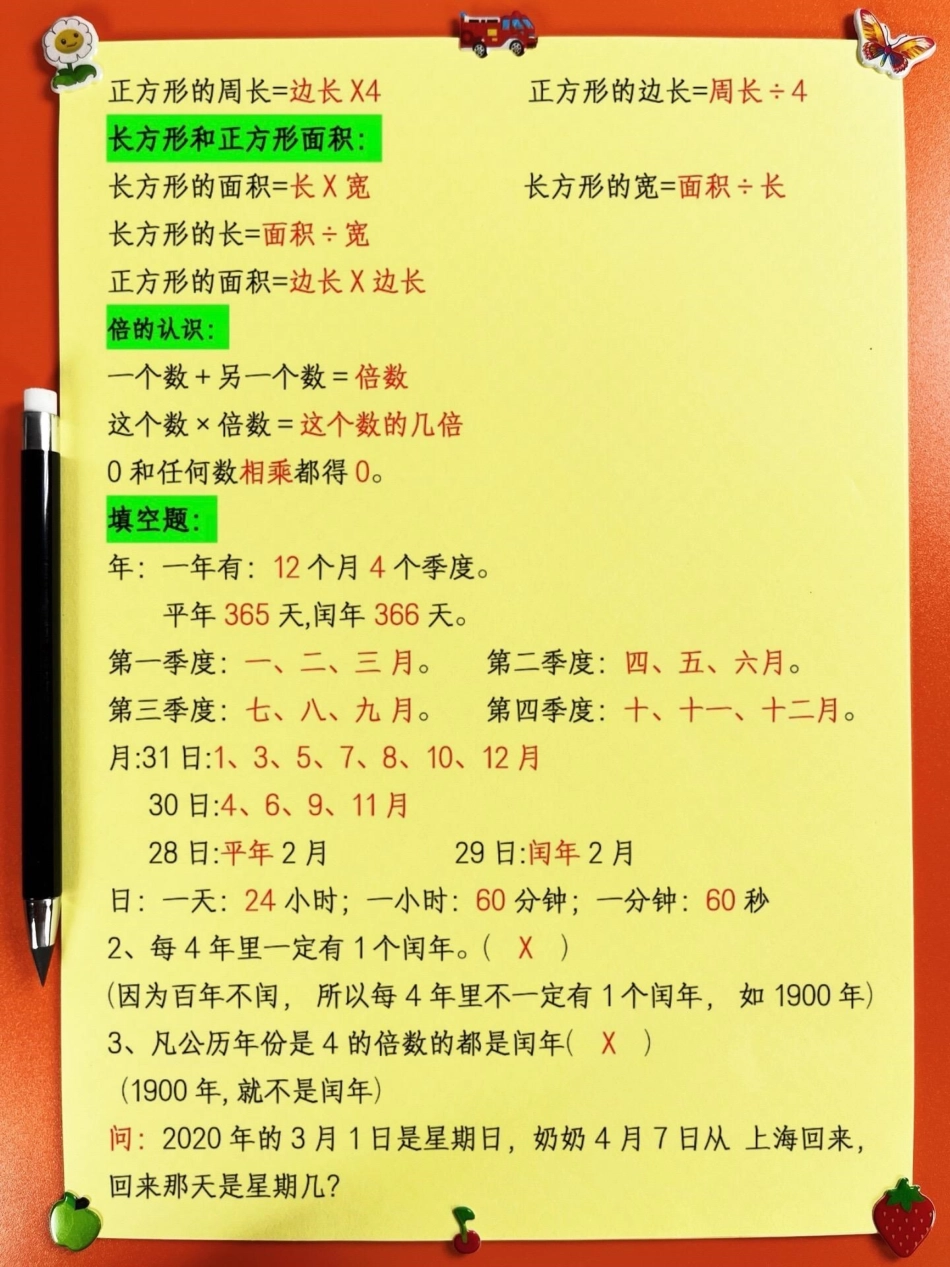 正方形的周长=边长X4 正方形的边长=周长÷4
长方形和正方形面积：
长方形的面积=长X宽 长方形的宽=面积÷长
长方形的长=面积÷宽
正方形的面积=边长X边长
倍的认识：
一个数+另一个数=倍数
这个数×倍数=这个数的几倍
0和任何数相乘都得0。
填空题：
年：一年有：12个月4个季度。
平年365天,闰年366天。
第一季度：一、二、三月。 第二季度：四、五、六月。
第三季度：七、八、九月。 第四季度：十、十一、十二月。
月:31日:1、3、5、7、8、10、12月
30日:4、6、9、11月
28日:平年2月 29日:闰年2月
日：一天：24小时；一小时：60分钟；一分钟：60秒
2、每4年里一定有1个闰年。( X )
(因为百年不闰， 所以每4年里不一定有1个闰年， 如1900年)
3、凡公历年份是4的倍数的都是闰年( X )
(1900年,就不是闰年)
问：2020年的3月1日是星期日，奶奶4月7日从 上海回来，
回来那天是星期几?